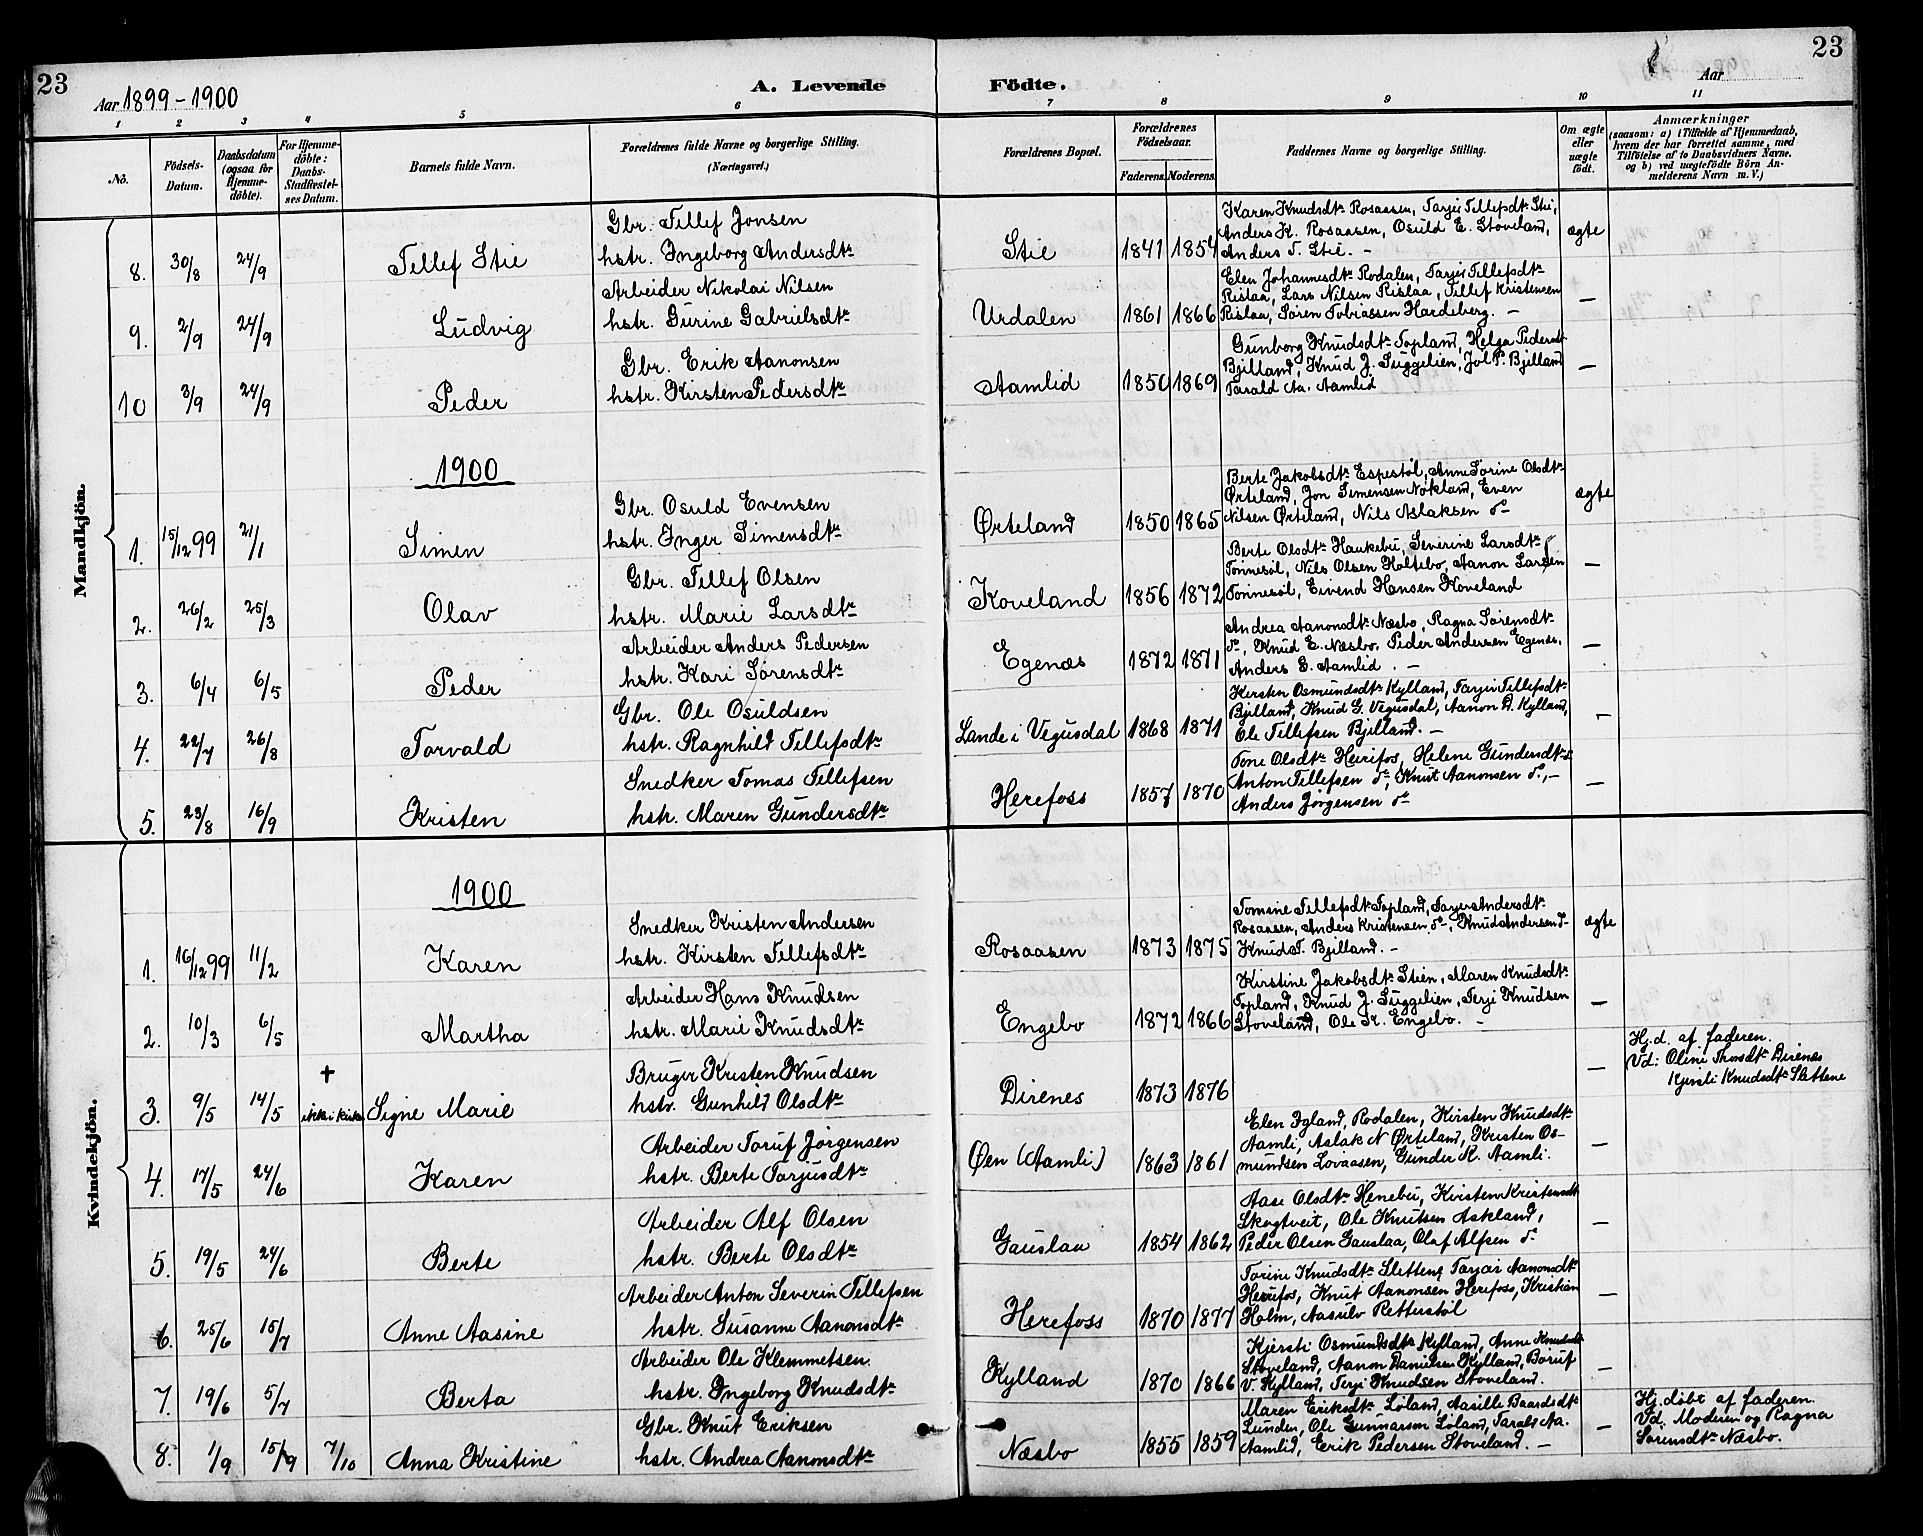 23
Aar 1899-1900
A. Levende Födte.
Aar
23
1 2 3 4 5 6 7 8 9 10 11
No.
Födsels-Datum.
Daabsdatum (ogsaa for Hjemme-döbte).
For Hjemme-döbte: Daabs-Stadfæstel-ses Datum.
Barnets fulde Navn.
Forældrenes fulde Navne og borgerlige Stilling. (Næringsvei.)
Forældrenes Bopæl.
Forældrenes Födselsaar.
Faderens. Moderens.
Faddernes Navne og borgerlige Stilling.
Om ægte eller uægte födt.
Anmærkninger
(saasom: a) i Tilfælde af Hjemmedaab, hvem der har forrettet samme, med Tilföielse af to Daabsvidners Navne. og b) ved uægtefödte Börn An-melderens Navn m. V.)
Mandkjön.
8. 30/8 24/9 Tellef Stie
Gbr. Tellef Jonsen
hstr. Ingeborg Andersdtr
Stie 1841 1854
Karen Knudsdtr Rosaasen, Tarjer Tellefsdtr Stei,
Anders K. Rosaasen, Osuld E. Stoveland,
Anders T. Stei. –
ægte
9. 2/9 24/9 Ludvig
Arbeider Nikolai Nilsen
hstr. Gurine Gabrielsdtr
Urdalen 1861 1866
Elen Johannesdtr Rodalen, Tarjer Tellefsdtr
Rislaa, Lars Nilsen Rislaa, Tellef Kristensen
Rislaa, Søren Tobiassen Hardeberg. –
–
10 3/9 24/9 Peder
Gbr. Erik Aanonsen
hstr. Kirsten Pedersdtr
Aamlid 1850 1869
Gunborg Knudsdtr Topland, Helga Pedersdtr
Bjelland, Knud J. Suggelien, Jol P. Bjelland
Tarald Aa. Aamlid
–
1900
1. 15/12 99 21/1 Simen
Gbr. Osuld Evensen
hstr. Inger Simensdtr
Ørteland 1850 1865
Berte Jakobsdtr Espestøl, Anne Sørine Olsdtr
Ørteland, Jon Simensen Nokland, Even
Nilsen Ørteland, Nils Aslaksen do
ægte
2. 26/2 25/3 Olav
Gbr. Tellef Olsen
hstr. Marie Larsdtr
Koveland 1856 1872
Berte Olsdtr Haukebu, Severine Larsdtr
Tonnesøl, Nils Olsen Holtebo, Aanon Larsen
Tonnesøl, Eivend Hansen Koveland
–
3. 6/4 6/5 Peder
Arbeider Anders Pedersen
hstr. Kari Sørensdtr
Egenæs 1872 1871
Andrea Aanonsdtr Næsbo, Ragna Sørensdtr
do, Knud E. Næsbo, Peder Andersen Egenæs,
Anders G. Aamlid. –
–
4. 22/7 26/8 Torvald
Gbr. Ole Osuldsen
hstr. Ragnhild Tellefsdtr
Lande i Vegusdal 1868 1871
Kirsten Osmundsdtr Kylland, Tarjer Tellefsdtr
Bjelland, Knud G. Vegusdal, Aanon D. Kylland,
Ole Tellefsen Bjelland. –
–
5. 23/8 16/9 Kristen
Snedker Tomas Tellefsen
hstr. Maren Gundersdtr
Herefoss 1857 1870
Tone Olsdtr Herefos, Helene Gundersdtr do
Anton Tellefsen do, Knut Aanonsen do, –
Anders Jørgensen do
–
Kvindekjön.
1900
1. 16/12 99 11/2 Karen
Snedker Kristen Andersen
hstr. Kirsten Tellefsdtr
Rosaasen 1873 1875
Tomine Tellefsdtr Topland, Tarjer Andersdtr
Rosaasen, Anders Kristensen do, Knud Andersen do
Knud T. Bjelland. –
ægte
2. 10/3 6/5 Martha
Arbeider Hans Knudsen
hstr. Marie Knudsdtr
Engebo 1872 1866
Kirstine Jakobsdtr Stein, Maren Knudsdtr
Topland, Knud J. Suggelien, Terje Knudsen
Stoveland, Ole K. Engebo. –
–
3. 9/5 14/5 † ikke i kirke Signe Marie
Bruger Kristen Knudsen
hstr. Gunhild Olsdtr
Direnes 1873 1876
–
Hj.d. af faderen.
Vd: Oline Thorsdtr Direnæs
Kjersti Knudsdtr Slettene
4. 17/5 24/6 Karen
Arbeider Toruf Jørgensen
hstr. Berte Tarjusdtr
Øen (Aamli) 1863 1861
Elen Øyland, Rodalen, Kirsten Knudsdtr
Aamli, Aslak N Ørteland, Kristen Os-
mundsen Lovaasen, Gunder K. Aamli.
–
5. 19/5 24/6 Berte
Arbeider Alf Olsen
hstr. Berte Olsdtr
Gauslaa 1854 1862
Aase Olsdtr Henebu, Kirsten Kristensdtr
Skogtveit, Ole Knutsen Askland,
Peder Olsen Gauslaa, Olaf Alfsen do
–
6. 25/6 15/7 Anne Aasine
Arbeider Anton Severin Tellefsen
hstr. Susanne Aanonsdtr
Herefoss 1870 1877
Torine Knudsdtr Slettene, Tarjer Aanonsdtr
Herefos, Knut Aanonsen Herefoss, Kristian
Holm, Aasulv Rettestøl
–
7. 19/6 5/7 Berta
Arbeider Ole Klemmetsen.
hstr. Ingeborg Knudsdtr
Kylland 1870 1866
Kjersti Osmundsdtr Kylland, Anne Knudsdtr
Stoveland, Aanon Danielsen Kylland, Boruf
V. Kylland, Terje Knudsen Stoveland.
–
8. 1/9 15/9 7/10 Anna Kristine
Gbr. Knut Eriksen
hstr. Andrea Aanonsdtr
Næsbo 1855 1859
Maren Eriksdtr Løland, Aasille Baardsdtr
Lunden, Ole Gunnarson Løland, Tarald Aa.
Aamlid, Eerik Pedersen Stoveland. –
–
Hj.døbt af faderen.
Vd: Moderen og Ragna
Sørensdtr Næsbo.